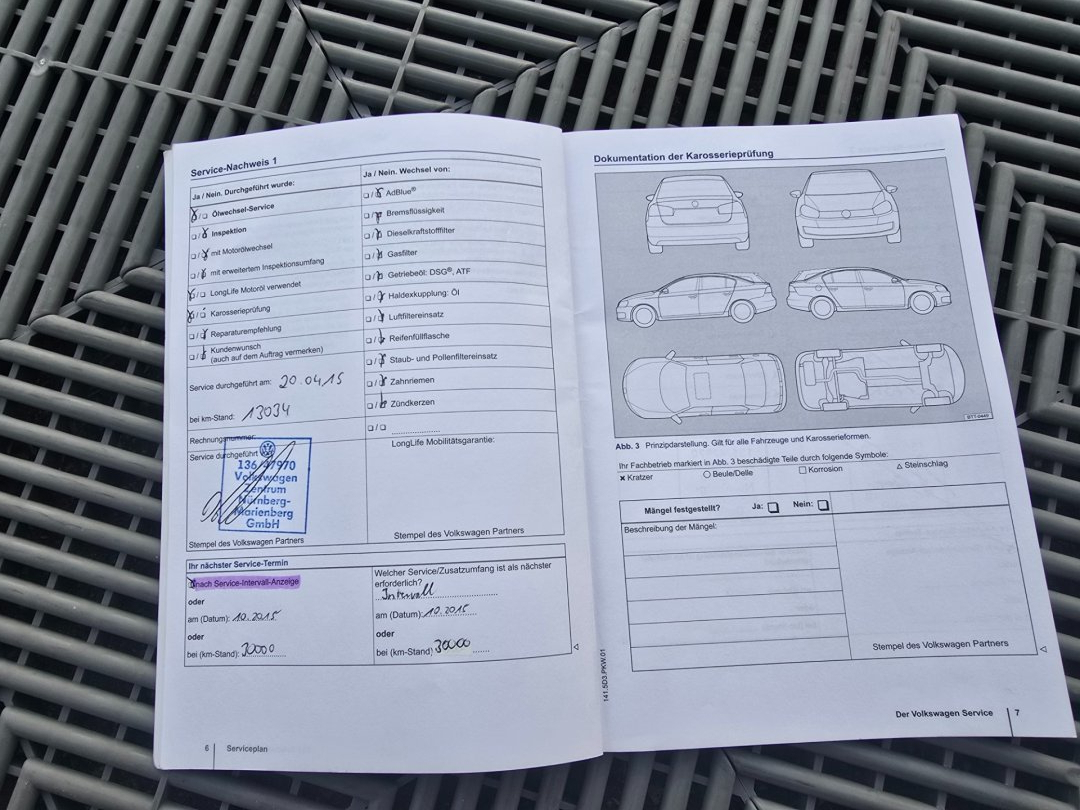 Service-Nachweis 1
Ja / Nein. Durchgeführt wurde:
Ölwechsel-Service
Inspektion
mit Motorölwechsel
mit erweitertem Inspektionsumfang
LongLife Motoröl verwendet
Karosserieprüfung
Reparaturempfehlung
Kundenwunsch
(auch auf dem Auftrag vermerken)
Service durchgeführt am: 20.04.15
bei km-Stand: 13034
Rechnungsnummer:
Service durchgeführt
136 47970
Volkswagen
Zentrum
Nürnberg-
Marienberg
GmbH
Stempel des Volkswagen Partners
Ja / Nein. Wechsel von:
AdBlue®
Bremsflüssigkeit
Dieselkraftstofffilter
Gasfilter
Getriebeöl: DSG®, ATF
Haldexkupplung: Öl
Luftfiltereinsatz
Reifenfüllflasche
Staub- und Pollenfiltereinsatz
Zahnriemen
Zündkerzen
LongLife Mobilitätsgarantie:
Stempel des Volkswagen Partners
Ihr nächster Service-Termin
nach Service-Intervall-Anzeige
oder
am (Datum): 10.2015
oder
bei (km-Stand): 30000
Welcher Service/Zusatzumfang ist als nächster
erforderlich?
Intervall
am (Datum): 10.2015
oder
bei (km-Stand) 30000
6 Serviceplan
Dokumentation der Karosserieprüfung
BTT-0449
Abb. 3 Prinzipdarstellung. Gilt für alle Fahrzeuge und Karosserieformen.
Ihr Fachbetrieb markiert in Abb. 3 beschädigte Teile durch folgende Symbole:
Kratzer Beule/Delle Korrosion Steinschlag
Mängel festgestellt? Ja: Nein:
Beschreibung der Mängel:
Stempel des Volkswagen Partners
141.5D3.PKW.01
Der Volkswagen Service 7